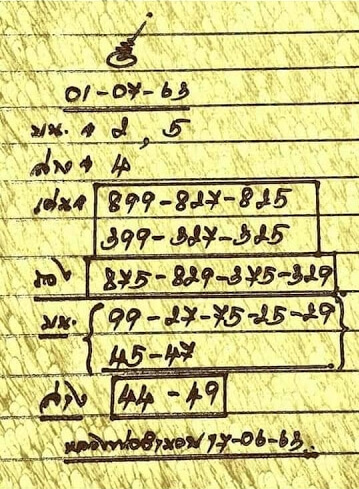 01-07-63
บน. → 2, 5
ล่าง → 4
เด่น → 899-827-825
399-327-325
รอง 875-829-375-329
บน. 99-27-75-25-29
45-47
ล่าง 44-49
17-06-63